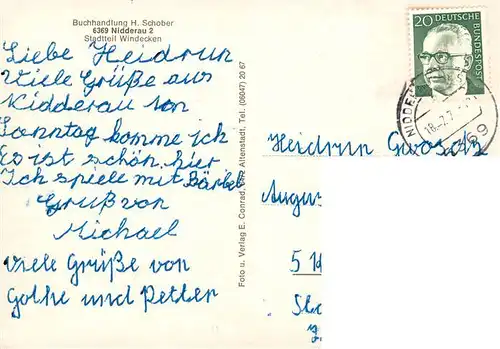 Buchhandlung H. Schober
6369 Nidderau 2
Stadtteil Windecken
Liebe Heidrun
Viele Grüße aus
Nidderau von
Sonntag komme ich
Es ist schön hier
Ich spiele mit Bärbel
Gruß von
Michael
Viele Grüße von
Gothe und Petter
Foto u. Verlag E. Conrad, Altenstadt, Tel. (06047) 20 67
20 DEUTSCHE
BUNDESPOST
NIDDER
6369
Heidrun
Augus
5